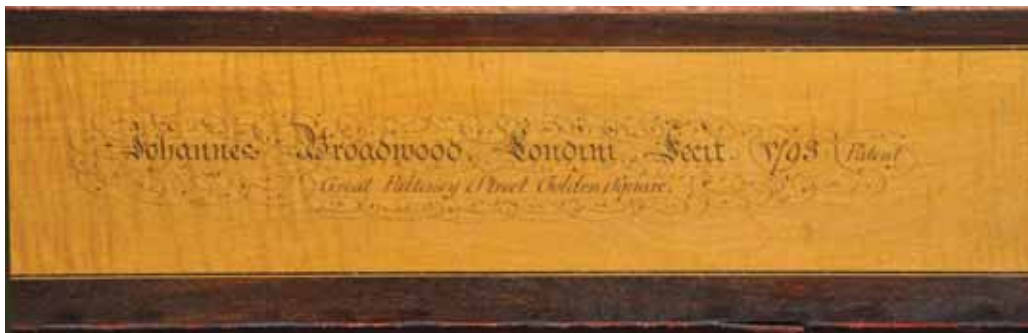 Johannes Broadwood. Londini. Fecit. 1793 Patent
Great Pulteney Street Golden Square.